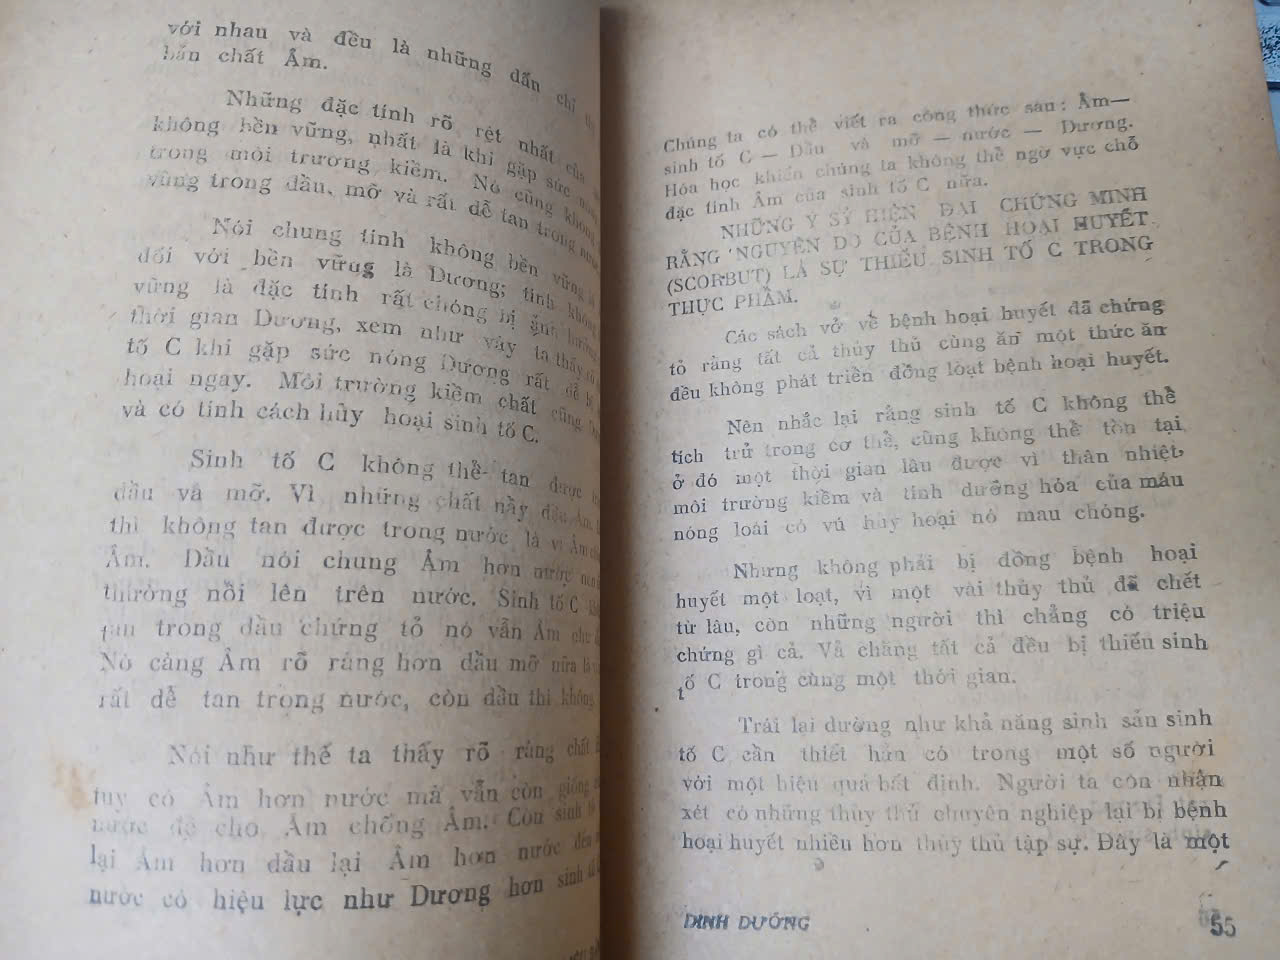 với nhau và đều là những dấn chỉ
bản chất Âm.
Những đặc tính rõ rệt nhất của
không bền vững, nhất là khi gặp sức nóng
trong môi trường kiềm. Nó cũng không
vững trong dầu, mỡ và rất dễ tan trong nước
Nói chung tính không bền vững là
đối với bền vững là Dương; tính không
vững là đặc tính rất chóng bị ảnh hưởng
thời gian Dương, xem như vậy ta thấy
tố C khi gặp sức nóng Dương rất dễ bị
hoại ngay. Môi trường kiềm chất cũng
và có tính cách hủy hoại sinh tố C.
Sinh tố C không thể tan được
dầu và mỡ. Vì những chất nầy đều Âm
thì không tan được trong nước là vì Âm
Âm. Dầu nói chung Âm hơn nước nên
thường nổi lên trên nước. Sinh tố C
tan trong dầu chứng tỏ nó vẫn Âm
Nó càng Âm rõ ràng hơn dầu mỡ nữa là
rất dễ tan trong nước, còn dầu thì không
Nói như thế ta thấy rõ ràng chất
tuy có Âm hơn nước mà vẫn còn giống
nước để cho Âm chống Âm. Còn sinh tố
lại Âm hơn dầu lại Âm hơn nước đến
nước có hiệu lực như Dương hơn sinh
Chúng ta có thể viết ra công thức sau : Âm—
sinh tố C — Dầu và mỡ — nước — Dương.
Hóa học khiến chúng ta không thể ngờ vực chỗ
đặc tính Âm của sinh tố C nữa.
NHỮNG Y SỸ HIỆN ĐẠI CHỨNG MINH
RẰNG NGUYÊN DO CỦA BỆNH HOẠI HUYẾT
(SCORBUT) LÀ SỰ THIẾU SINH TỐ C TRONG
THỰC PHẨM.
Các sách vở về bệnh hoại huyết đã chứng
tỏ rằng tất cả thủy thủ cùng ăn một thức ăn
đều không phát triển đồng loạt bệnh hoại huyết.
Nên nhắc lại rằng sinh tố C không thể
tích trử trong cơ thể, cũng không thể tồn tại
ở đó một thời gian lâu được vì thân nhiệt,
môi trường kiềm và tính dưỡng hóa của máu
nóng loài có vú hủy hoại nó mau chóng.
Nhưng không phải bị đồng bệnh hoại
huyết một loạt, vì một vài thủy thủ đã chết
từ lâu, còn những người thì chẳng có triệu
chứng gì cả. Vả chăng tất cả đều bị thiếu sinh
tố C trong cùng một thời gian.
Trái lại dường như khả năng sinh sản sinh
tố C cần thiết hẳn có trong một số người
với một hiệu quả bất định. Người ta còn nhận
xét có những thủy thủ chuyên nghiệp lại bị bệnh
hoại huyết nhiều hơn thủy thủ tập sự. Đây là một
DINH DƯỠNG
55